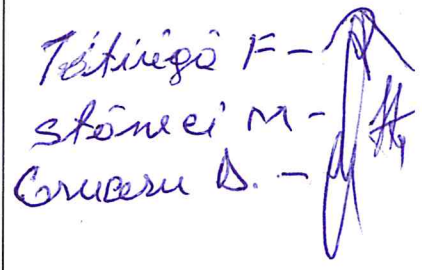 Tătirigă F -
Stănei M -
Grucesu D. -